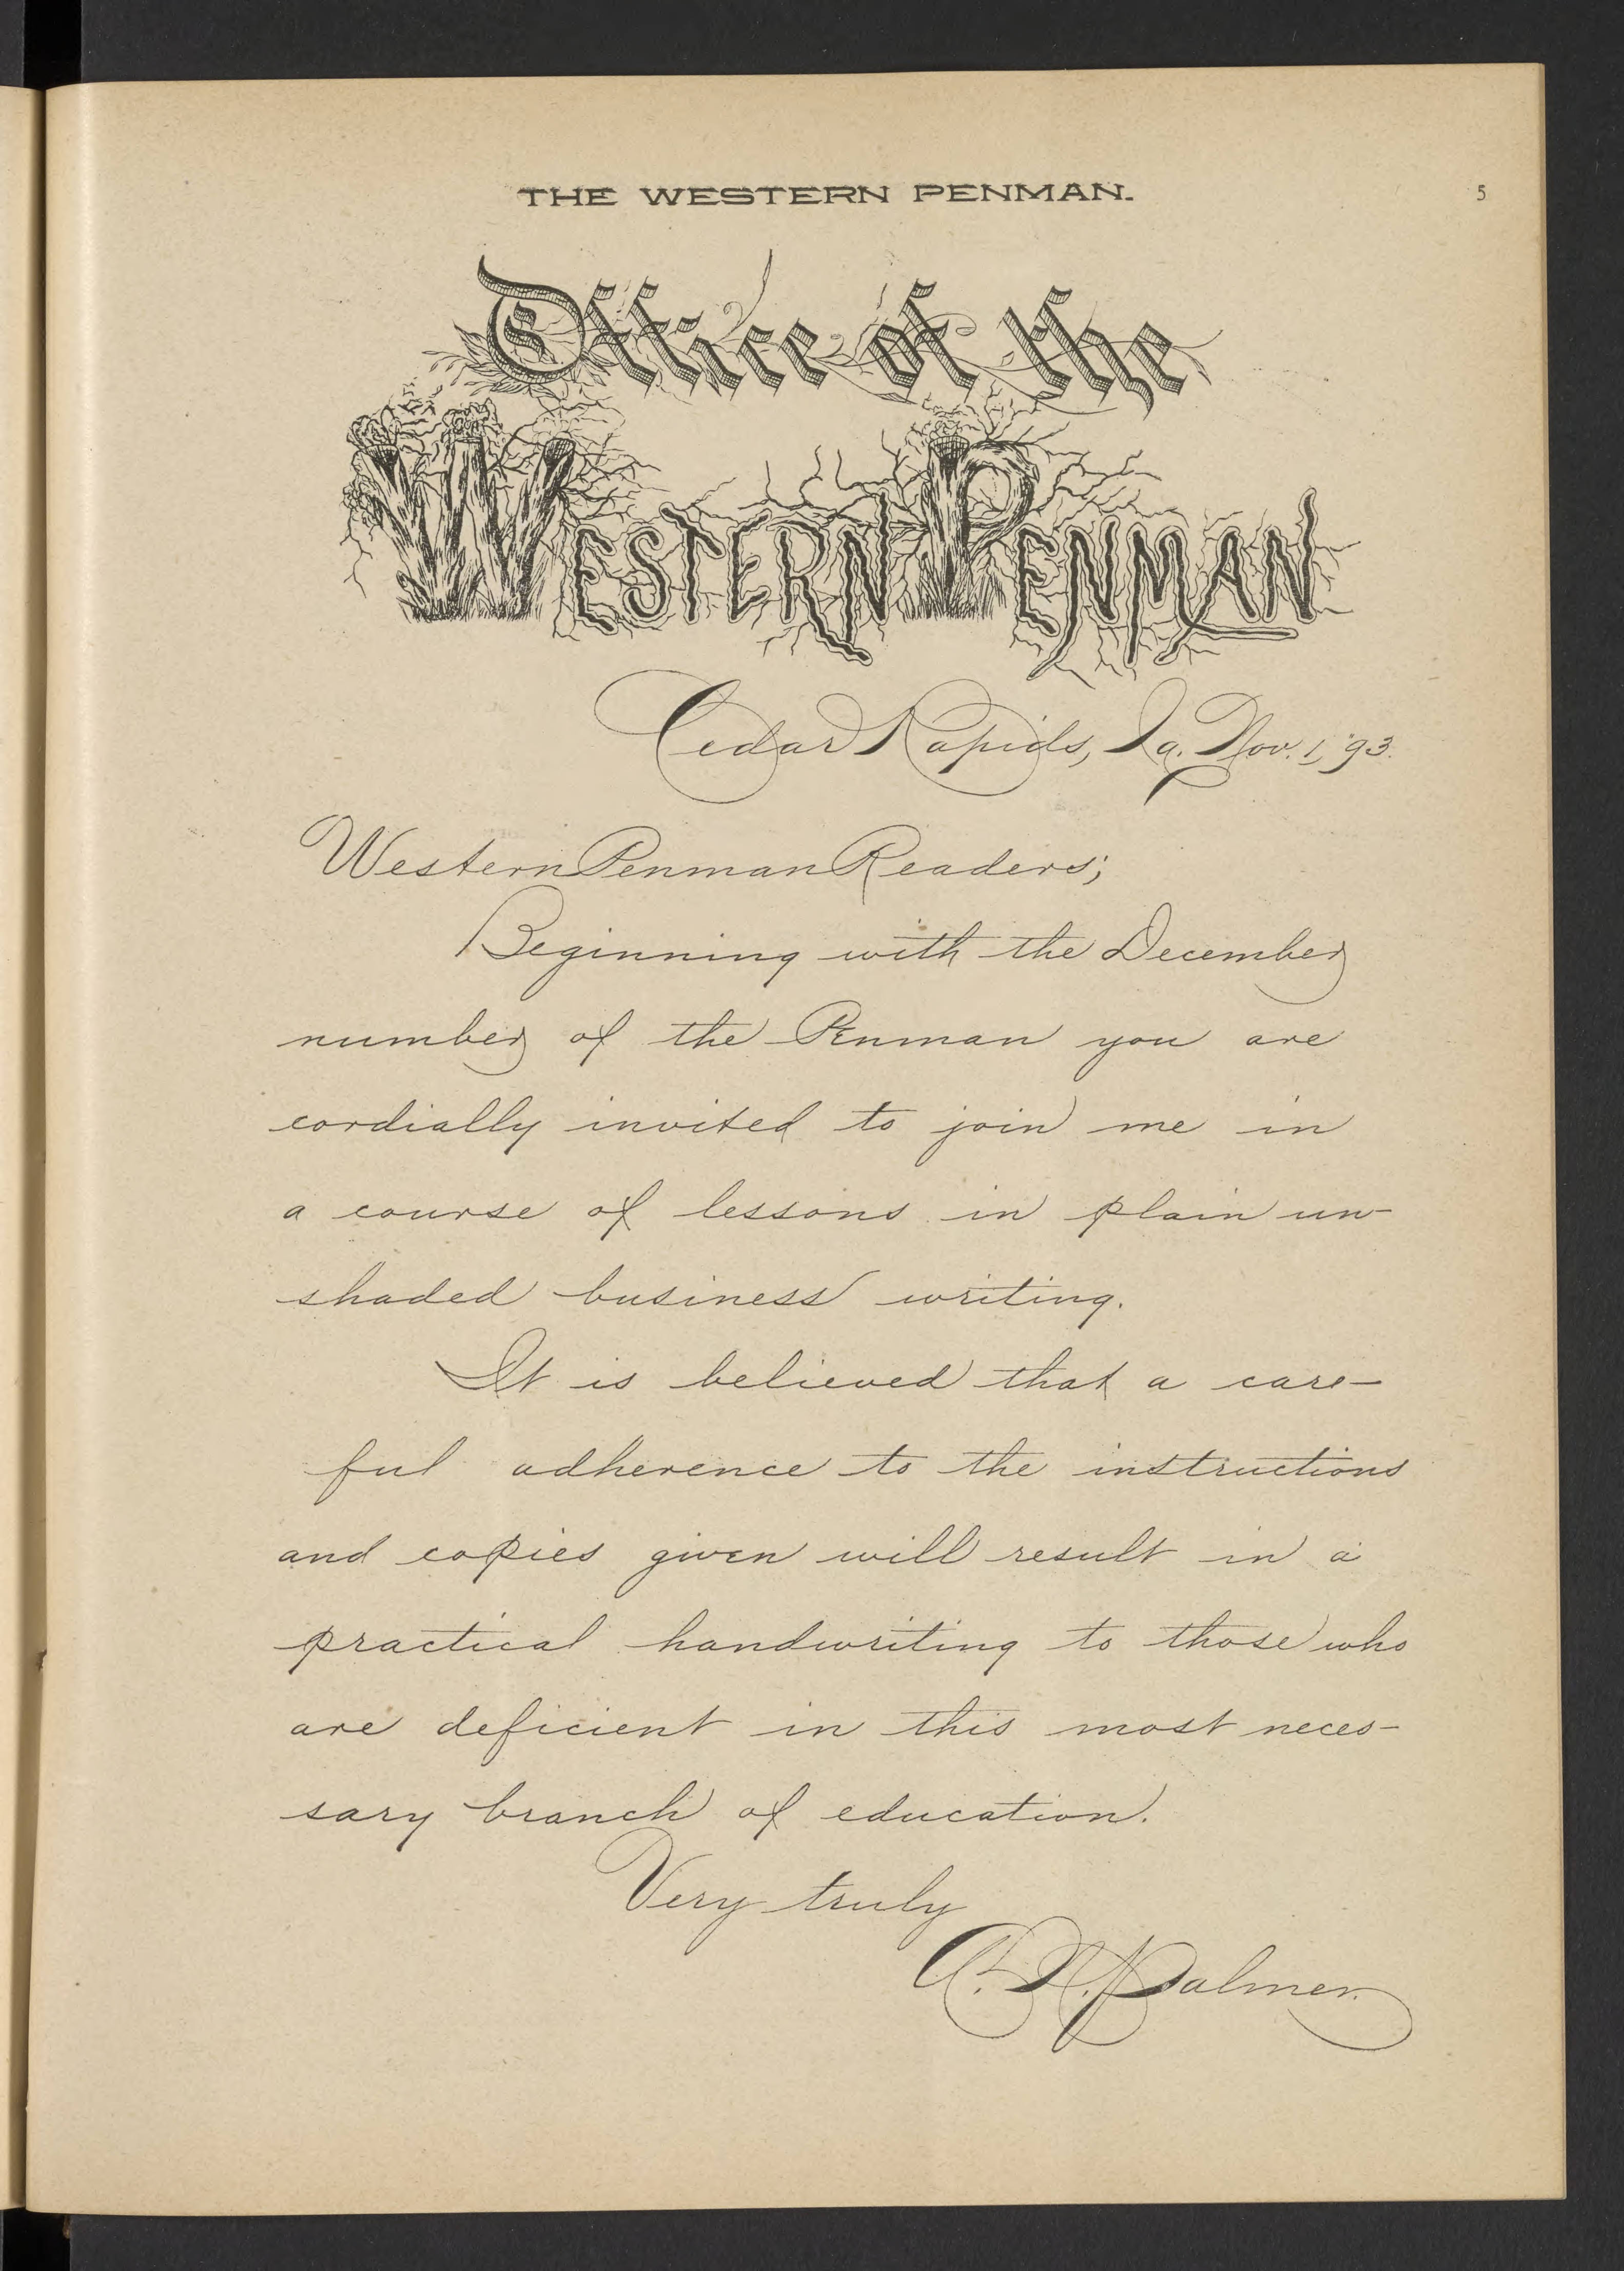 THE WESTERN PENMAN.
5
Office of the
WESTERN PENMAN
Cedar Rapids, Ia. Nov. 1, '93.
Western Penman Readers;
Beginning with the December
number of the Penman you are
cordially invited to join me in
a course of lessons in plain un-
shaded business writing.
It is believed that a care-
ful adherence to the instructions
and copies given will result in a
practical handwriting to those who
are deficient in this most neces-
sary branch of education.
Very truly
A. N. Palmer.